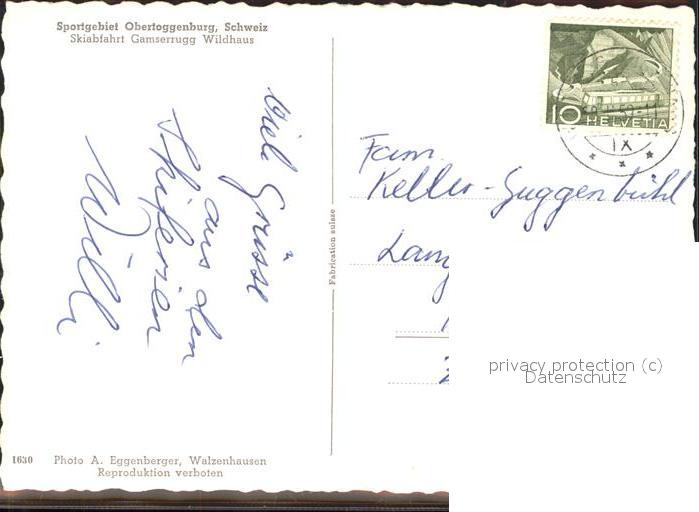 Sportgebiet Obertoggenburg, Schweiz
Skiabfahrt Gamserrugg Wildhaus
viel Grüsse
aus den
Skiferien
Willi.
Fabrication suisse
10 HELVETIA
IX
Fam.
Keller-Guggenbühl
Lang
privacy protection (c)
Datenschutz
1630 Photo A. Eggenberger, Walzenhausen
Reproduktion verboten